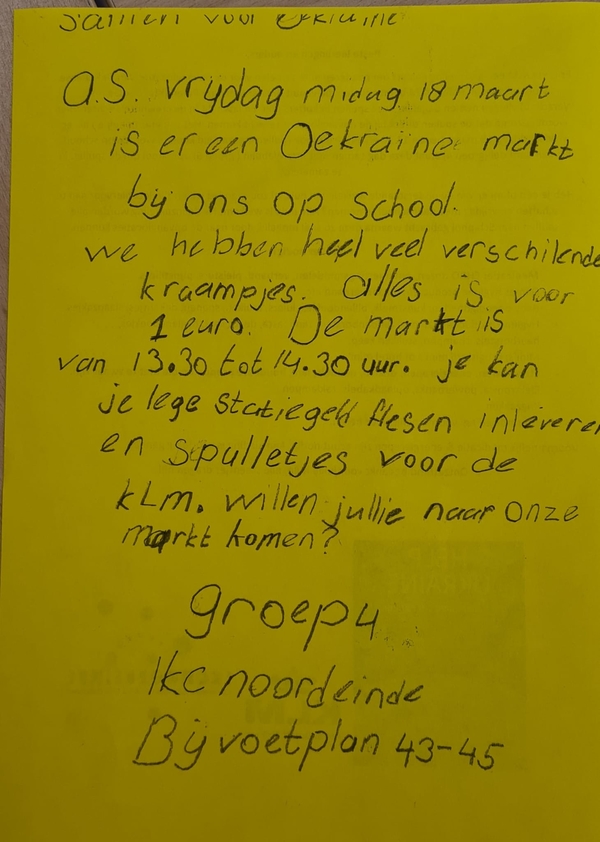 samen voor Oekraïne
a.S. vrijdag midag 18 maart
is er een Oekraïne markt
bij ons op School.
we hebben heel veel verschilende
kraampjes. alles is voor
1 euro. De markt is
van 13.30 tot 14.30 uur. je kan
je lege statiegeld flesen inleveren
en spulletjes voor de
kLm. willen jullie naar onze
markt komen?
groep 4
Ikc noordeinde
Bijvoetplan 43-45